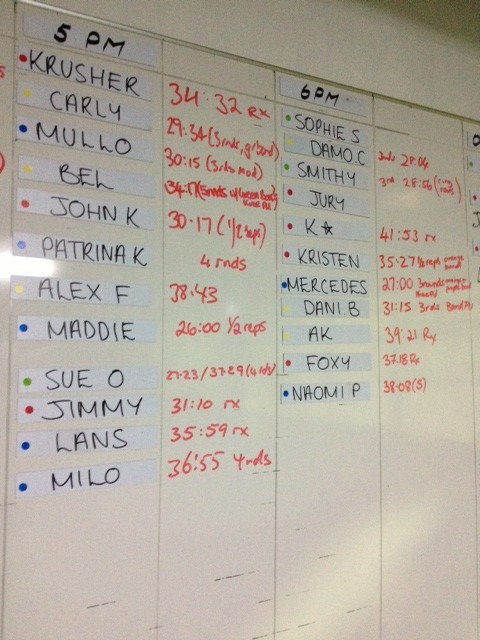 5 PM
KRUSHER 34:32 Rx
CARLY 29:34 (3rnds, gr/band)
MULLO 30:15 (3rds mod)
BEL
JOHN K 30:17 (1/2 reps)
PATRINA K 4 rnds
ALEX F 38:43
MADDIE 26:00 1/2 reps
SUE O 27:23 / 37:29 (4 rds)
JIMMY 31:10 rx
LANS 35:59 rx
MILO 36:55 4rnds
6PM
SOPHIE S
DAMO.C 28:04
SMITHY 3rd 28:56
JURY
K☆ 41:53 rx
KRISTEN 35:27 1/2 reps orange band
MERCEDES 27:00 3rounds
DANI.B 31:15 3rds Band
AK 39:21 Rx
FOXY 37:18 Rx
NAOMI P 38:08 (5)